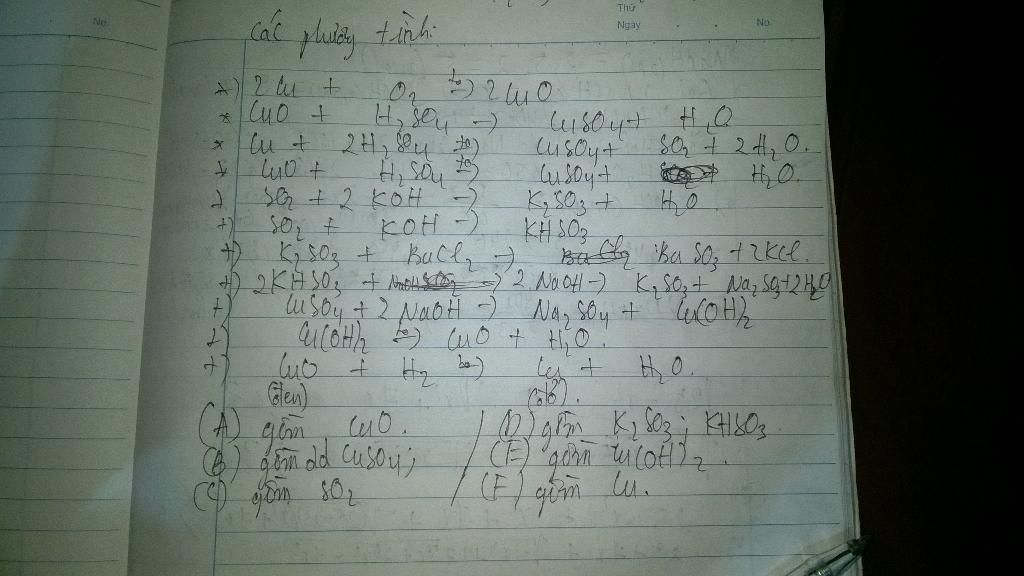 No.
Thứ
Ngày No.
Các phương trình:
*) 2Cu + O2 to→ 2CuO
* CuO + H2SO4 → CuSO4 + H2O
* Cu + 2H2SO4 to→ CuSO4 + SO2 + 2H2O.
* CuO + H2SO4 to→ CuSO4 + H2O.
+) SO2 + 2 KOH → K2SO3 + H2O
+) SO2 + KOH → KHSO3
+) K2SO3 + BaCl2 → BaCl2 BaSO3 + 2KCl.
+) 2KHSO3 + 2 NaOH → K2SO3 + Na2SO3 + 2H2O
+) CuSO4 + 2 NaOH → Na2SO4 + Cu(OH)2
+) Cu(OH)2 to→ CuO + H2O.
+) CuO + H2 to→ Cu + H2O.
(đen) (đỏ).
(A) gồm CuO. / (D) gồm K2SO3; KHSO3
(B) gồm dd CuSO4; (E) gồm Cu(OH)2.
(C) gồm SO2 / (F) gồm Cu.